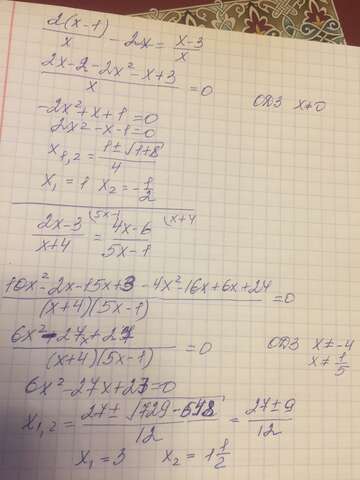 2(x-1)/x - 2x = x-3/x
2x-2-2x²-x+3/x = 0 ОДЗ x≠0
-2x²+x+1=0
2x²-x-1=0
x₁,₂ = 1±√1+8/4
x₁=1 x₂=-1/2
2x-3/x+4 (5x-1 = 4x-6/5x-1 (x+4
10x²-2x-15x+3-4x²-16x+6x+24/(x+4)(5x-1) = 0
6x²-27x+27/(x+4)(5x-1) = 0 ОДЗ x≠-4
x≠1/5
6x²-27x+27=0
x₁,₂ = 27±√729-648/12 = 27±9/12
x₁=3 x₂=1 1/2